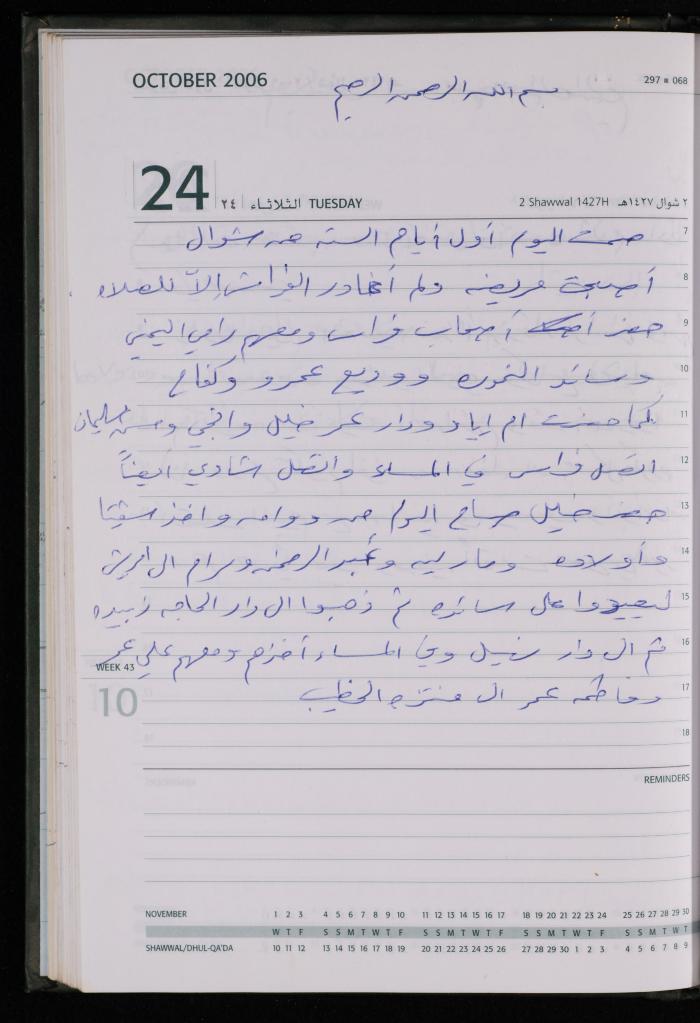 OCTOBER 2006
297 ■ 068
بسم الله الرحمن الرحيم
24 ٢٤ الثلاثاء TUESDAY
2 Shawwal 1427H ٢ شوال ١٤٢٧هـ
7 صمت اليوم أول أيام الستة من شوال
8 أصبحت مريضه ولم أغادر الفراش إلاّ للصلاه .
9 حضر أصحاب فراس ومعهم رامي اليمني
10 وسائد النمره ووديع عمرو وكفاح
11 كما حضرت ام اياد ودار عمر خليل وحسن سليمان
12 اتصل فراس في المساء واتصل شادي أيضاً
13 حضر خليل صباح اليوم من دوامه واخذ
14 وأولاده وماريه وعبد الرحمن ومرام الى
15 ليعيدوا على سائده ثم ذهبوا الى دار الحاجه زبيده
16 ثم الى دار نبيل وفي المساء أخذهم ومعهم علي عمر
17 وفاطمه عمر الى منتزه الخطيب
18
WEEK 43
10
REMINDERS
NOVEMBER 1 2 3 4 5 6 7 8 9 10 11 12 13 14 15 16 17 18 19 20 21 22 23 24 25 26 27 28 29 30
W T F S S M T W T F S S M T W T F S S M T W T F S S M T W T
SHAWWAL/DHUL-QA'DA 10 11 12 13 14 15 16 17 18 19 20 21 22 23 24 25 26 27 28 29 30 1 2 3 4 5 6 7 8 9